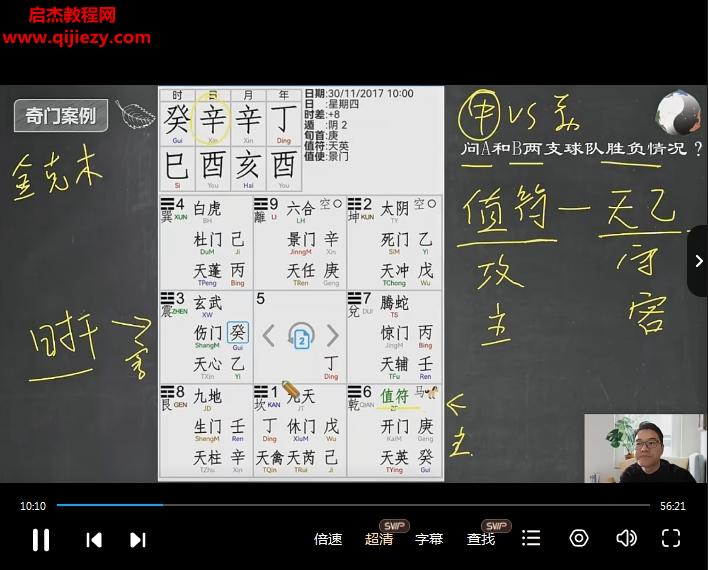 启杰教程网
www.qijiezy.com
奇门案例
时 日 月 年
癸 辛 辛 丁
Gui Xin Xin Ding
巳 酉 亥 酉
Si You Hai You
日期:30/11/2017 10:00
日 :星期四
时差:+8
遁 :阴 2
旬首:庚
值符:天英
值使:景门
甲 VS
问A和B两支球队胜负情况？
金克木
值符 — 天乙
攻 守
主 客
日时干 → 客
← 主
4 巽 XUN 白虎 BH
杜门 己
DuM Ji
天蓬 丙
TPeng Bing
9 離 LI 六合 LH 空○
景门 辛
JinngM Xin
天任 庚
TRen Geng
2 坤 KUN 太阴 TY 空○
死门 乙
SiM Yi
天冲 戊
TChong Wu
3 震 ZHEN 玄武 XW
伤门 癸
ShangM Gui
天心 乙
TXin Yi
5
2
丁
Ding
7 兌 DUI 腾蛇 TS
惊门 丙
JingM Bing
天辅 壬
TFu Ren
8 艮 GEN 九地 JD
生门 壬
ShengM Ren
天柱 辛
TZhu Xin
1 坎 KAN 九天 JT
丁 休门 戊
Ding XiuM Wu
天禽 天芮 己
TQin TRui Ji
6 乾 QIAN 值符 ZF 马
开门 庚
KaiM Geng
天英 癸
TYing Gui
10:10
56:21
倍速 超清 SWP 字幕 查找 SWP